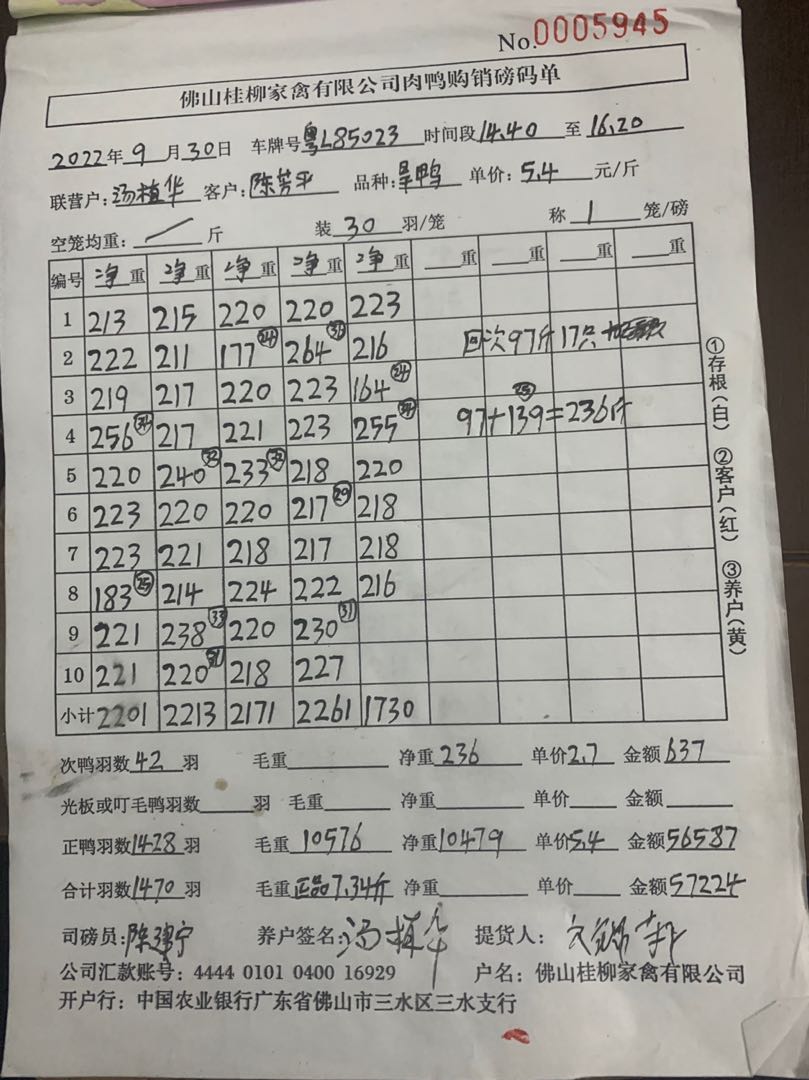 No.0005945
佛山桂柳家禽有限公司肉鸭购销磅码单
2022年9月30日 车牌号粤L85023 时间段14.40至16.20
联营户:汤植华 客户:陈芳平 品种:旱鸭 单价:5.4元/斤
空笼均重: / 斤 装30羽/笼 称1笼/磅
编号 净重 净重 净重 净重 净重 重 重 重 重
1 213 215 220 220 223
2 222 211 177(24) 264(36) 216 回次97斤17只
3 219 217 220 223 164(24)
4 256(34) 217 221 223 255(34) 97+139(25)=236斤
5 220 240(33) 233(32) 218 220
6 223 220 220 217(29) 218
7 223 221 218 217 218
8 183(25) 214 224 222 216
9 221 238(33) 220 230(31)
10 221 220(31) 218 227
小计 2201 2213 2171 2261 1730
①存根(白) ②客户(红) ③养户(黄)
次鸭羽数42羽 毛重 净重236 单价2.7 金额637
光板或叮毛鸭羽数 羽 毛重 净重 单价 金额
正鸭羽数1428羽 毛重10576 净重10479 单价5.4 金额56587
合计羽数1470羽 毛重正品7.34斤 净重 单价 金额57224
司磅员:陈建宁 养户签名:汤植华 提货人:
公司汇款账号:4444 0101 0400 16929 户名:佛山桂柳家禽有限公司
开户行:中国农业银行广东省佛山市三水区三水支行